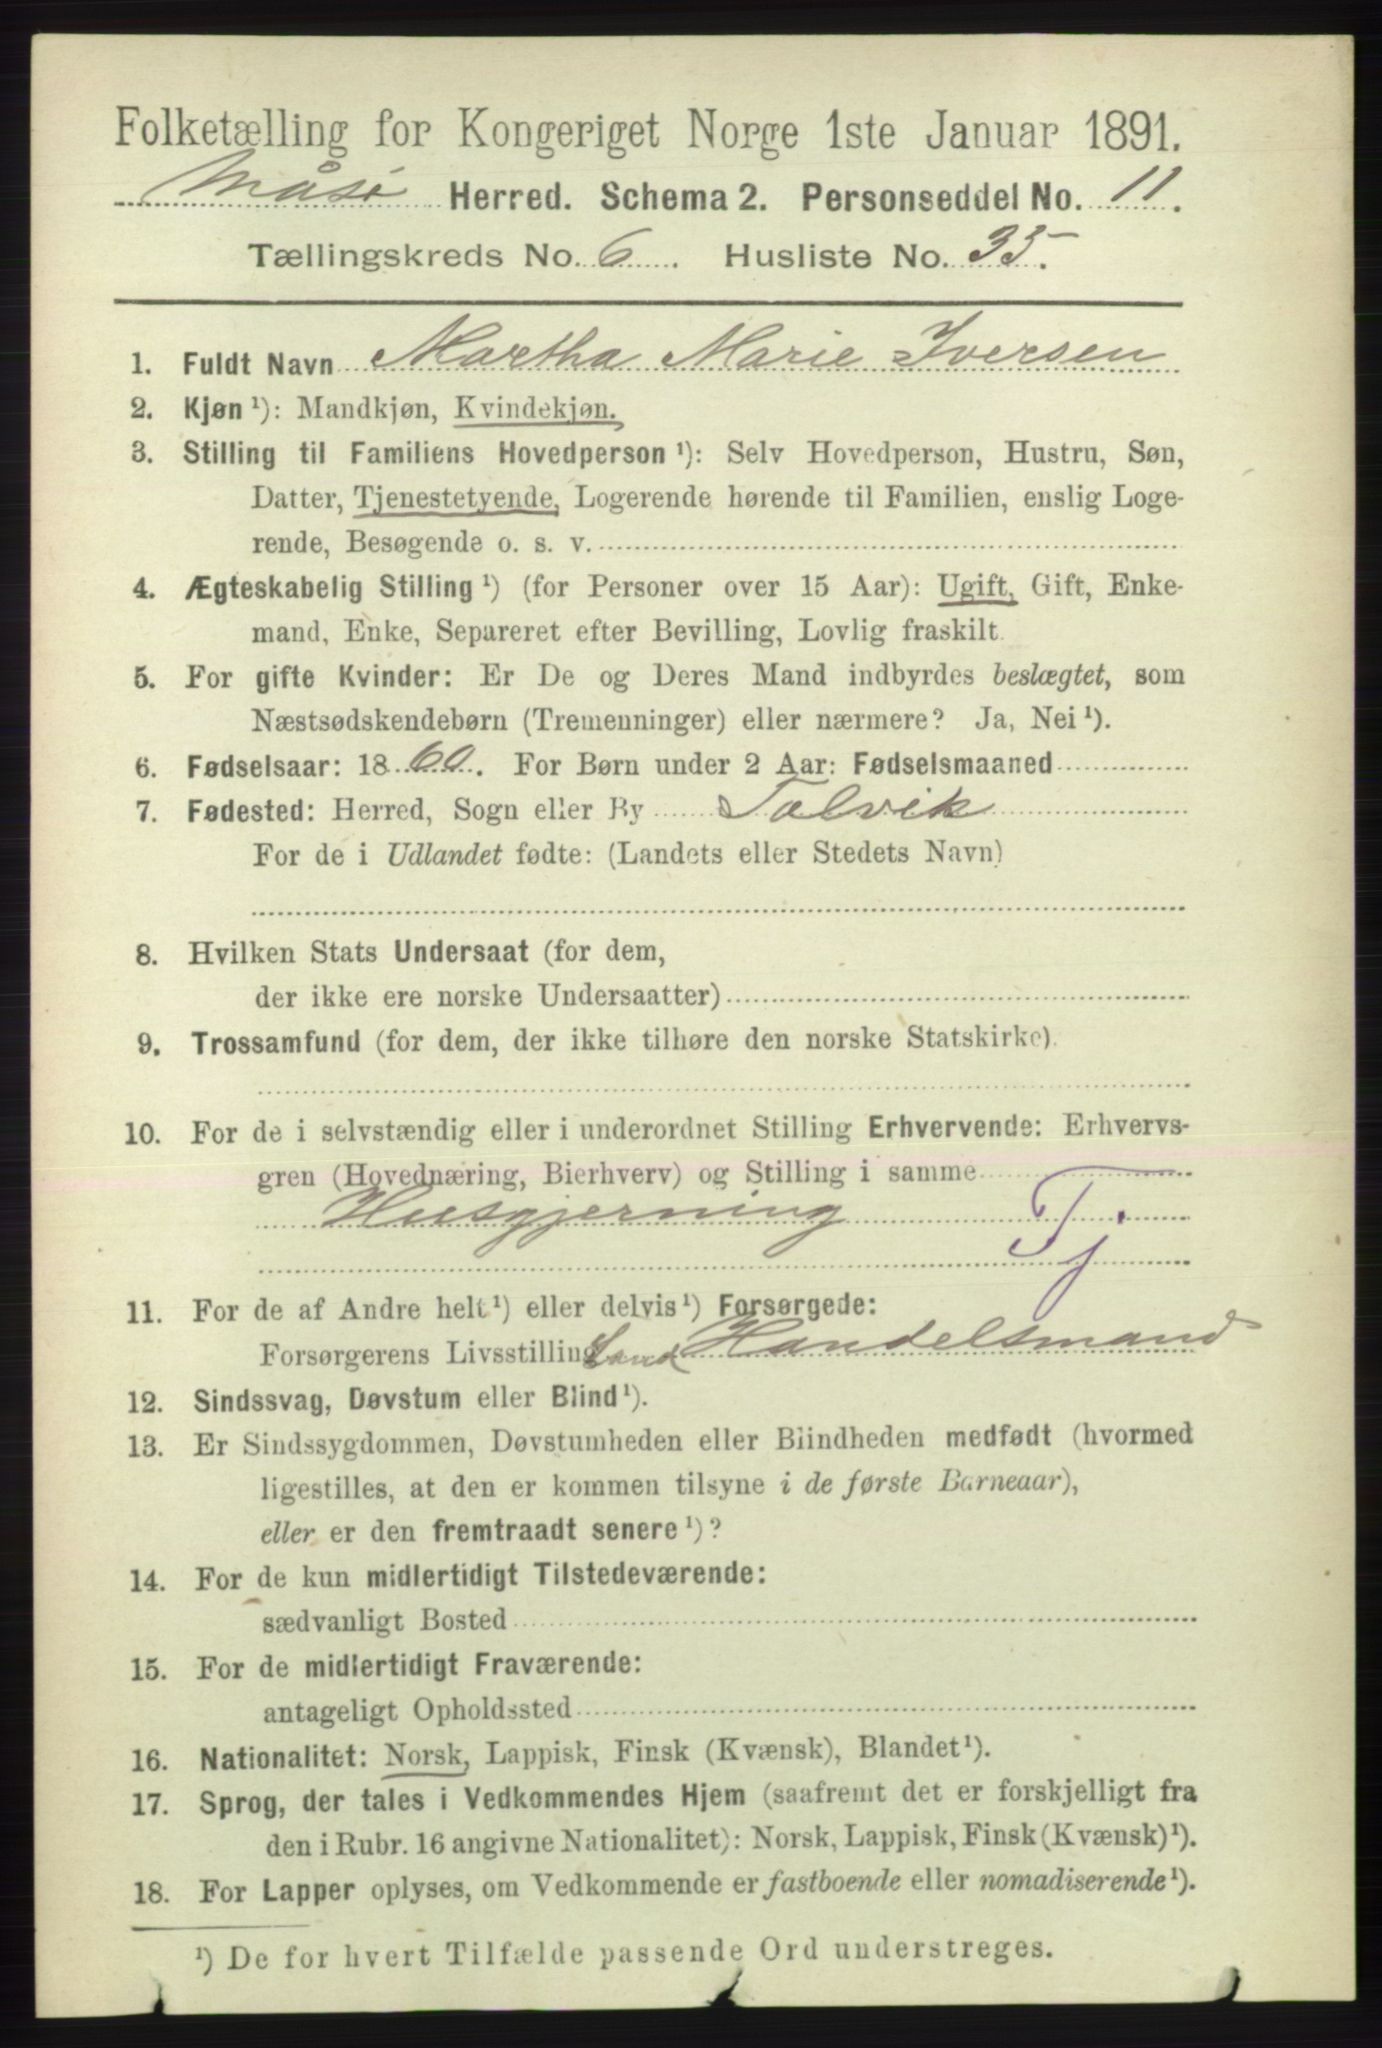 Folketælling for Kongeriget Norge 1ste Januar 1891.
Måsø Herred. Schema 2. Personseddel No. 11.
Tællingskreds No. 6. Husliste No. 35.
1. Fuldt Navn Martha Marie Iversen
2. Kjøn ¹): Mandkjøn, Kvindekjøn.
3. Stilling til Familiens Hovedperson ¹): Selv Hovedperson, Hustru, Søn,
Datter, Tjenestetyende, Logerende hørende til Familien, enslig Loge-
rende, Besøgende o. s. v.
4. Ægteskabelig Stilling ¹) (for Personer over 15 Aar): Ugift, Gift, Enke-
mand, Enke, Separeret efter Bevilling, Lovlig fraskilt.
5. For gifte Kvinder: Er De og Deres Mand indbyrdes beslægtet, som
Næstsødskendebørn (Tremenninger) eller nærmere? Ja, Nei ¹).
6. Fødselsaar: 1860. For Børn under 2 Aar: Fødselsmaaned
7. Fødested: Herred, Sogn eller By Talvik
For de i Udlandet fødte: (Landets eller Stedets Navn)
8. Hvilken Stats Undersaat (for dem,
der ikke ere norske Undersaatter)
9. Trossamfund (for dem, der ikke tilhøre den norske Statskirke).
10. For de i selvstændig eller i underordnet Stilling Erhvervende: Erhvervs-
gren (Hovednæring, Bierhverv) og Stilling i samme
Husgjerning Tj
11. For de af Andre helt ¹) eller delvis ¹) Forsørgede:
Forsørgerens Livsstilling Land Handelsmand
12. Sindssvag, Døvstum eller Blind ¹).
13. Er Sindssygdommen, Døvstumheden eller Blindheden medfødt (hvormed
ligestilles, at den er kommen tilsyne i de første Barneaar),
eller er den fremtraadt senere ¹)?
14. For de kun midlertidigt Tilstedeværende:
sædvanligt Bosted
15. For de midlertidigt Fraværende:
antageligt Opholdssted
16. Nationalitet: Norsk, Lappisk, Finsk (Kvænsk), Blandet ¹).
17. Sprog, der tales i Vedkommendes Hjem (saafremt det er forskjelligt fra
den i Rubr. 16 angivne Nationalitet): Norsk, Lappisk, Finsk (Kvænsk) ¹).
18. For Lapper oplyses, om Vedkommende er fastboende eller nomadiserende ¹).
¹) De for hvert Tilfælde passende Ord understreges.